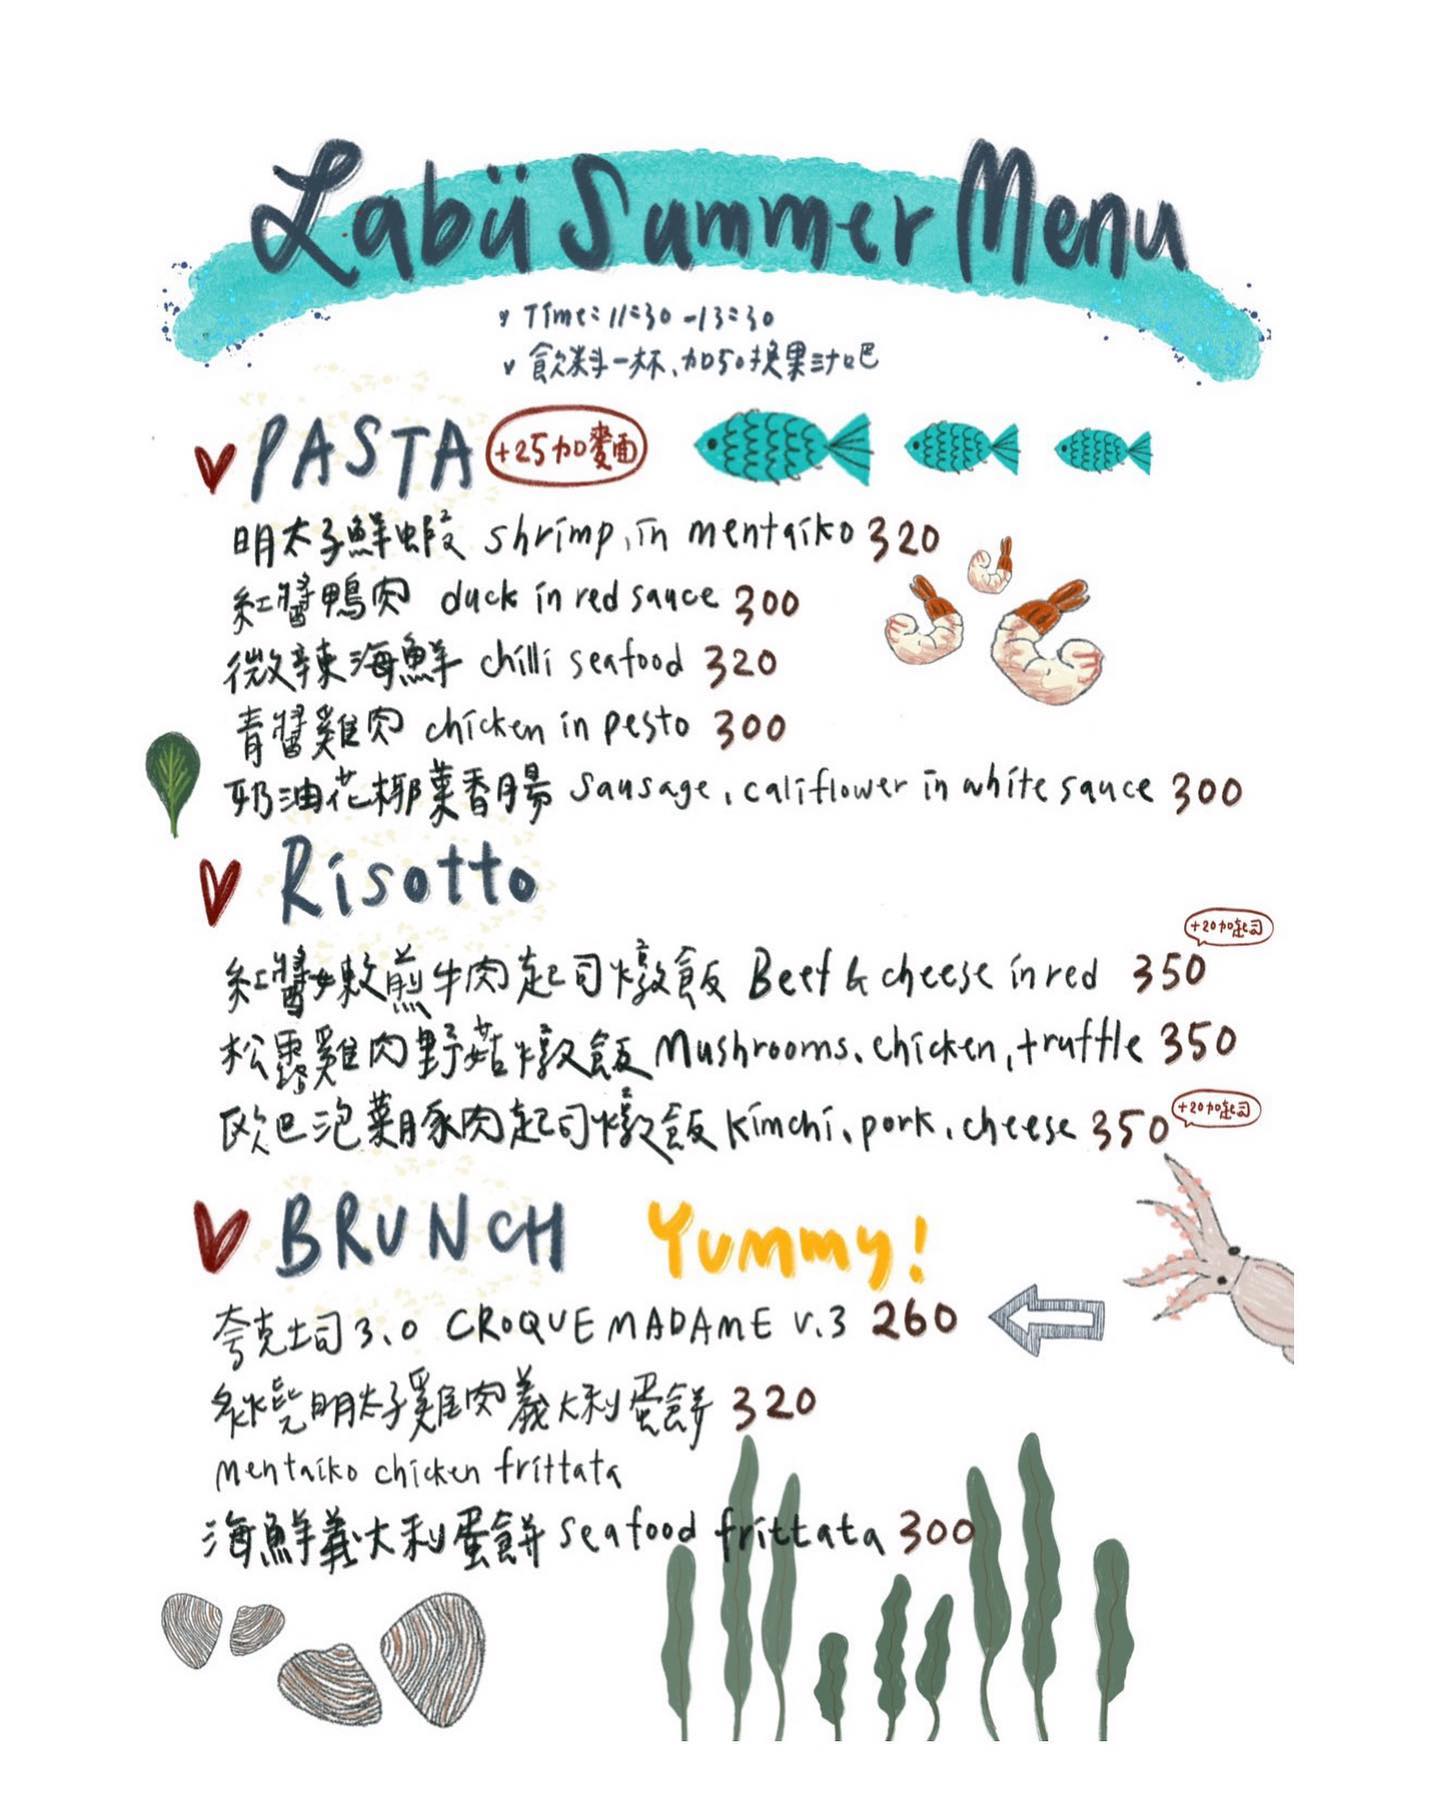 Labü Summer Menu
Time: 11:30 - 13:30
飲料一杯、加50換果汁吧
PASTA +25加麵
明太子鮮蝦 shrimp, in mentaiko 320
紅醬鴨肉 duck in red sauce 300
微辣海鮮 chilli seafood 320
青醬雞肉 chicken in pesto 300
奶油花椰菜香腸 sausage, califlower in white sauce 300
Risotto
+20加起司
紅醬嫩煎牛肉起司燉飯 Beef & cheese in red 350
松露雞肉野菇燉飯 Mushrooms、chicken, truffle 350
歐巴泡菜豚肉起司燉飯 kimchi、pork、cheese 350 +20加起司
BRUNCH Yummy!
夸克土司3.0 CROQUE MADAME V.3 260
明太子雞肉義大利蛋餅 320
mentaiko chicken frittata
海鮮義大利蛋餅 seafood frittata 300